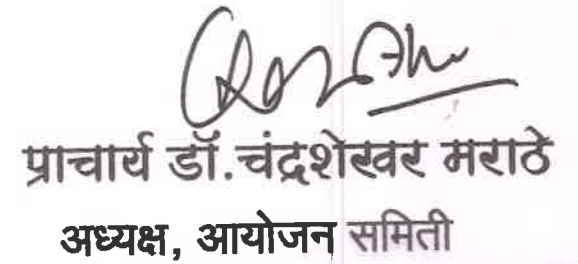 प्राचार्य डॉ.चंद्रशेखर मराठे
अध्यक्ष, आयोजन समिती